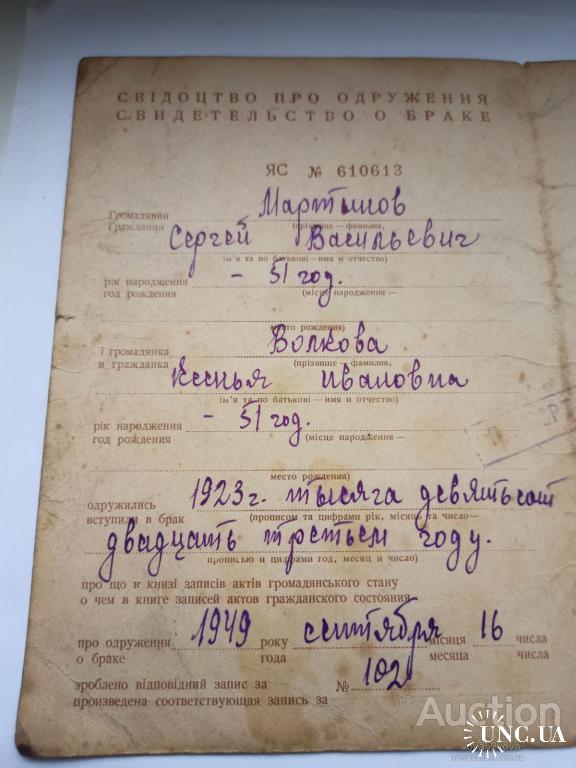 СВІДОЦТВО ПРО ОДРУЖЕННЯ
СВИДЕТЕЛЬСТВО О БРАКЕ
ЯС № 610613
Громадянин Мартынов
Гражданин (прізвище – фамилия,
Сергей Васильевич
ім'я та по батькові – имя и отчество)
рік народження – 51 год.
год рождения (місце народження –
место рождения)
і громадянка Волкова
и гражданка (прізвище – фамилия,
Ксенья Ивановна
ім'я та по батькові – имя и отчество)
рік народження – 51 год.
год рождения (місце народження –
место рождения)
одружились 1923 г. тысяча девятьсот
вступили в брак (прописом та цифрами рік, місяць та число –
двадцать третьем году.
прописью и цифрами год, месяц и число)
про що в книзі записів актів громадянського стану
о чем в книге записей актов гражданского состояния
про одруження 1949 року сентября місяця 16 числа
о браке года месяца числа
зроблено відповідний запис за № 102
произведена соответствующая запись за
Auction
UNC.UA